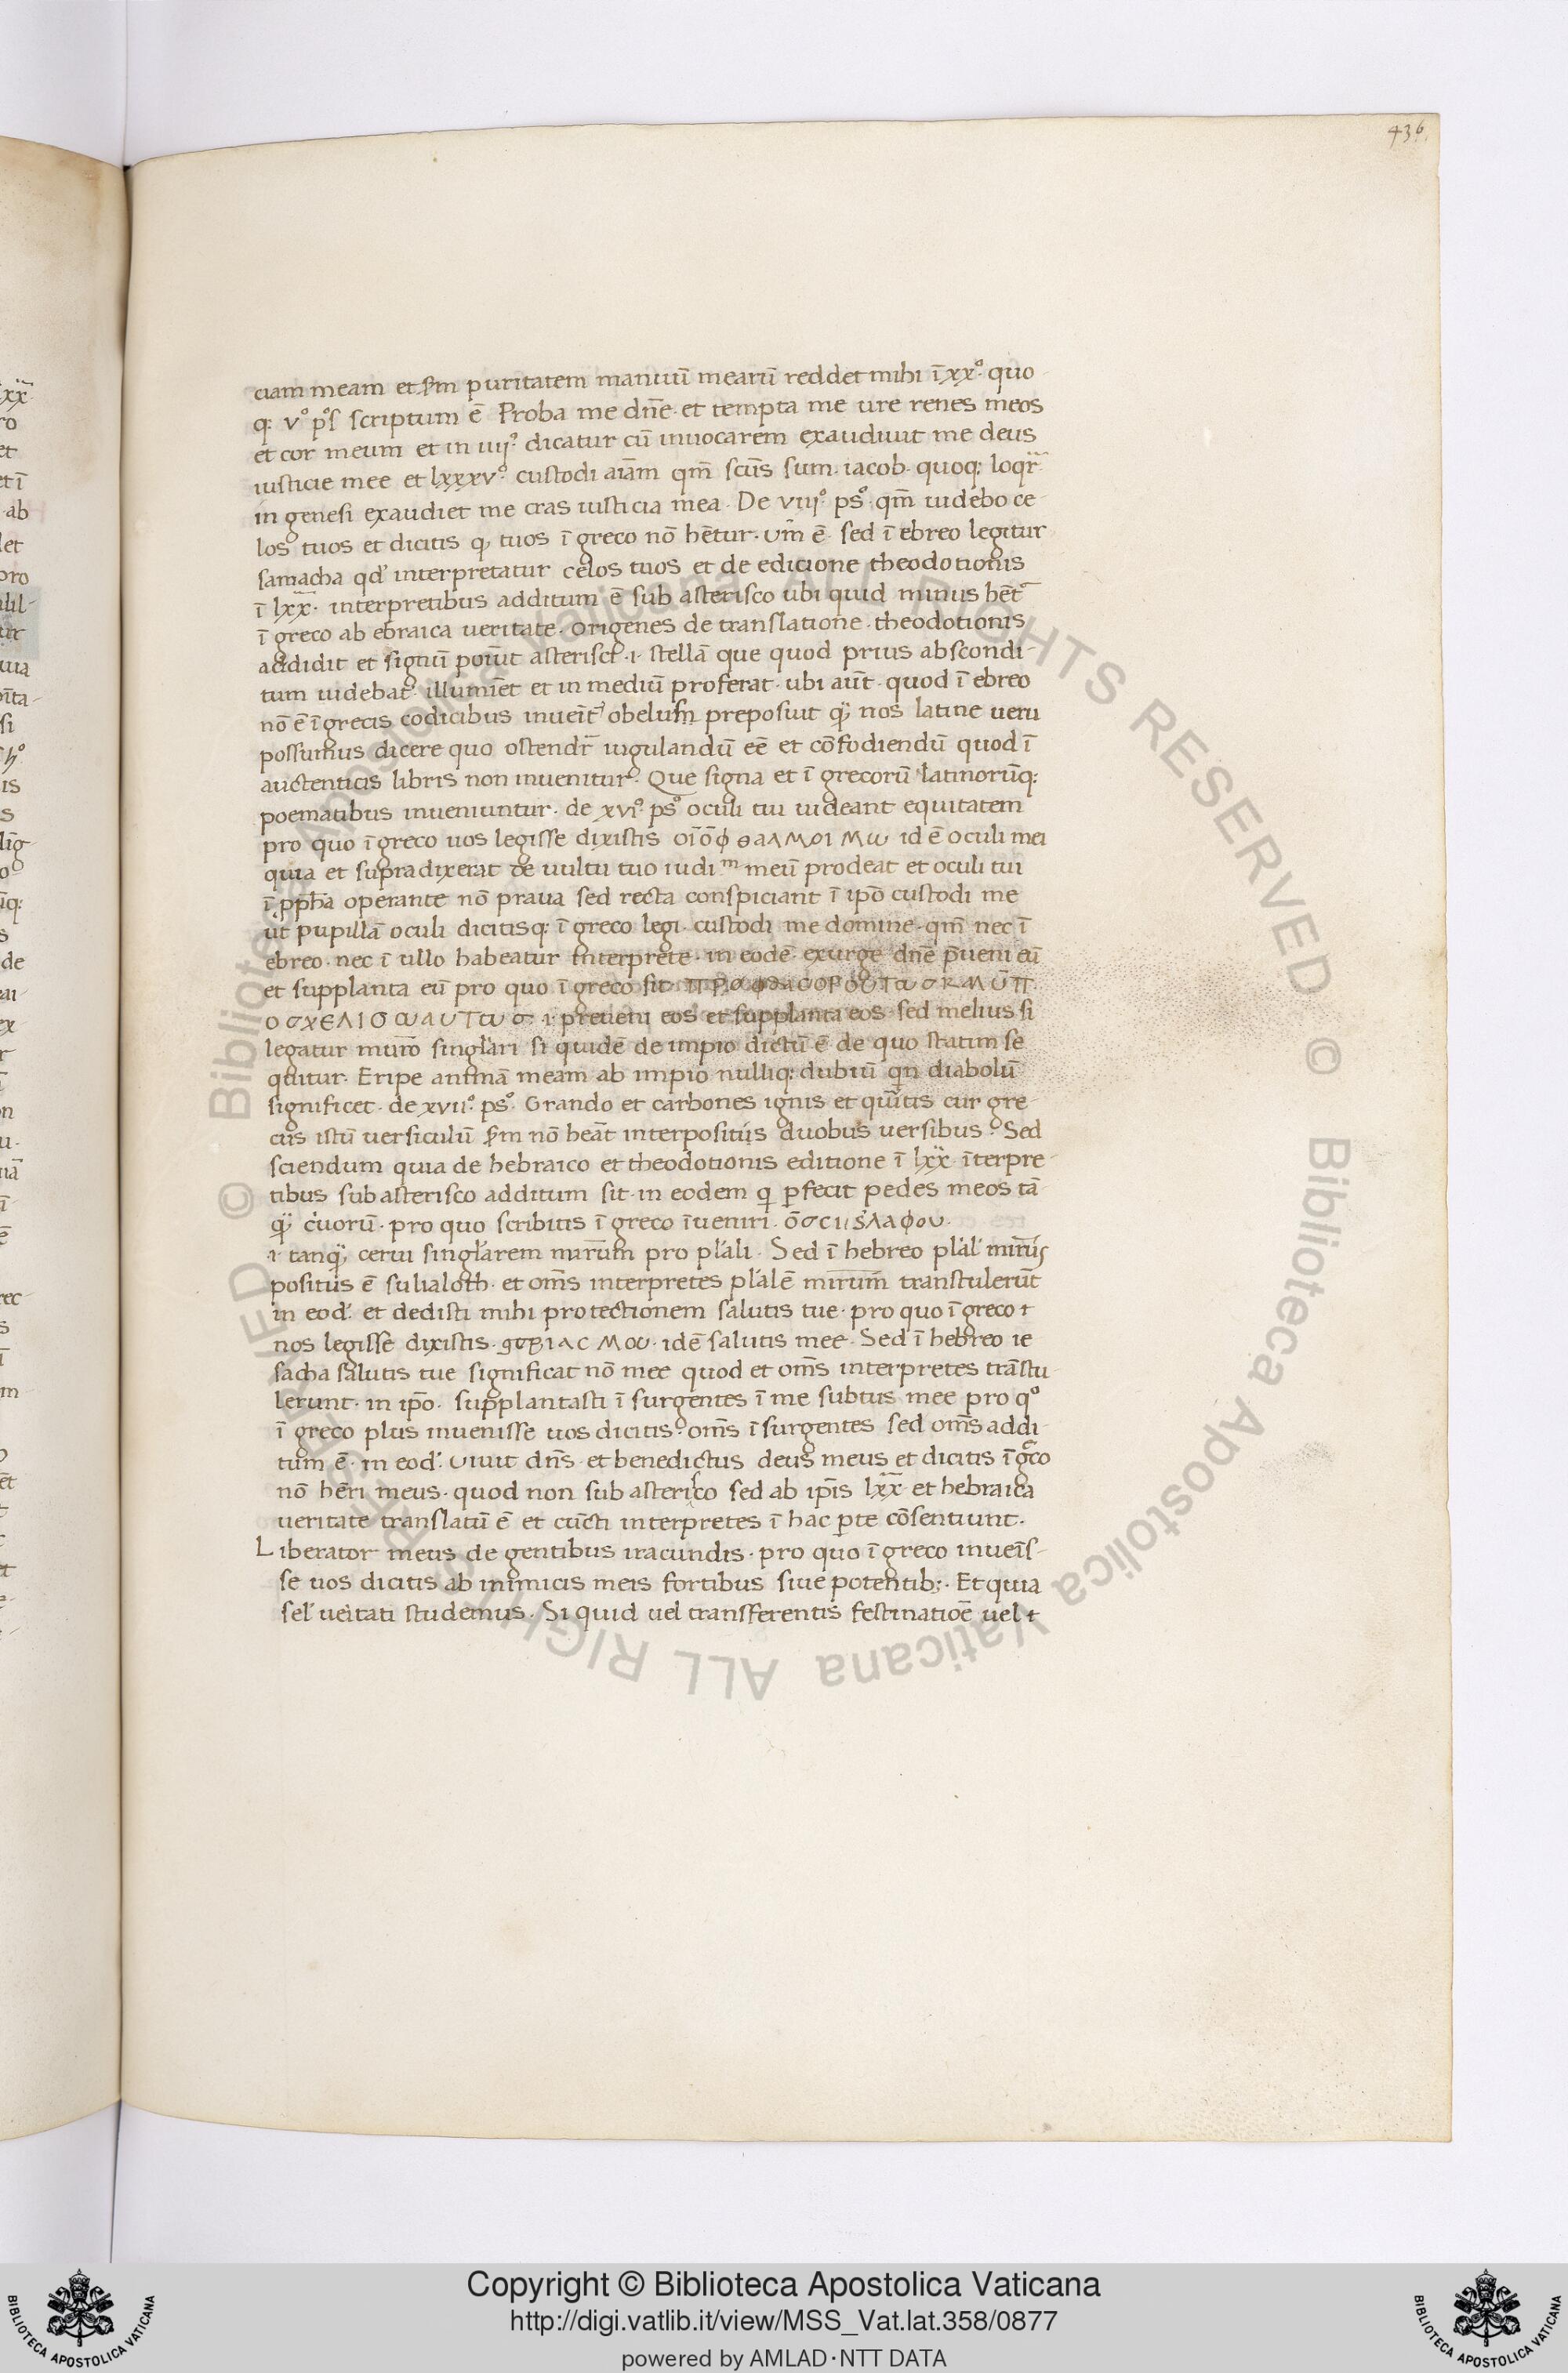 436.
ciam meam et scđm puritatem manuū mearū reddet mihi ī xx°. quo
q: v° pͦs scriptum ē Proba me dn̄e. et tempta me ure renes meos
et cor meum et in iiij°. dicatur cū inuocarem exaudiuit me deus
iusticie mee et lxxxv°. custodi aīam qm̄ scūs sum. iacob. quoq: loqr̄
in genesi exaudiet me cras iusticia mea. De viij°. ps° qm̄ uidebo ce-
los tuos et dicitis q, tuos ī greco nō hētur. um̄ ē. sed ī ebreo legitur
samacha qd' interpretatur celos tuos et de edicione theodotionis
ī lxx. interpretibus additum ē sub asterisco ubi quid minus hēt̄
ī greco ab ebraica ueritate. Origenes de translatione. theodotionis
addidit et signū poīut asterisci .i. stellā que quod prius abscondi-
tum uidebat' illumīet et in mediū proferat. ubi aūt. quod ī ebreo
nō ē ī grecis codicibus inueīt' obelum preposuit q, nos latine ueru
possumus dicere quo ostendr̄ iugulandū eē et cōfodiendū quod ī
auctenticis libris non inuenitur. Que signa et ī grecorū latinorūq:
poematibus inueniuntur. de xvi°. ps° oculi tui uideant equitatem
pro quo ī greco uos legisse dixistis οἱ ὀφθαλμοι μω id ē oculi mei
quia et supra dixerat de uultu tuo iudiᵐ meū prodeat et oculi tui
ī ppħa operante nō praua sed recta conspiciant ī ipō custodi me
ut pupillā oculi dicitisq: ī greco legi. custodi me domine. qm̄ nec ī
ebreo. nec ī ullo habeatur interprete. in eodē. exurge dn̄e p̄ueni eū
et supplanta eū pro quo ī greco sit.
.i. preueni eos et supplanta eos. sed melius si
legatur mur̄o singl'ari si quidē de impio dictū ē de quo statim se
quitur. Eripe animā meam ab impio nulliq: dubiū qn diabolū
significet. de xvii°. ps°. Grando et carbones ignis et qūitis cur gre-
cus istū uersiculū scđm nō heāt interpositis duobus uersibus. Sed
sciendum quia de hebraico et theodotionis editione ī lxx īterpre-
tibus sub asterisco additum sit. in eodem q p̱fecit pedes meos tā
q, c'uorū. pro quo scribitis ī greco īueniri.
.i. tanq, cerui singl'arem nur̄um pro pl'ali. Sed ī hebreo pl'al'
positus ē sulialoth. et om̄s interpretes pl'alē transtulerūt
in eod'. et dedisti mihi protectionem salutis tue. pro quo ī greco
nos legisse dixistis. id ē salutis mee. Sed ī hebreo ie
sacha salutis tue significat nō mee quod et om̄s interpretes trāstu-
lerunt. in ip̄o. supplantasti ī surgentes ī me subtus mee pro q°
ī greco plus inuenisse uos dicitis. om̄s ī surgentes sed om̄s addi
tum ē. in eod'. uiuit dn̄s. et benedictus deus meus et dicitis ī gͣco
nō hēri meus. quod non sub asterisco sed ab ip̄is lxx et hebraica
ueritate translatū ē et cūcti interpretes ī hac p̱te cōsentiunt.
Liberator meus de gentibus iracundis. pro quo ī greco inueīs-
se uos dicitis ab inimicis meis fortibus siue potentib;. Et quia
sel' ueritati studemus. Si quid uel transferentis festinatioē uel
© Biblioteca Apostolica Vaticana ALL RIGHTS RESERVED © Biblioteca Apostolica Vaticana ALL RIGHTS RESERVED
Copyright © Biblioteca Apostolica Vaticana
http://digi.vatlib.it/view/MSS_Vat.lat.358/0877
powered by AMLAD·NTT DATA
BIBLIOTECA APOSTOLICA VATICANA
BIBLIOTECA APOSTOLICA VATICANA